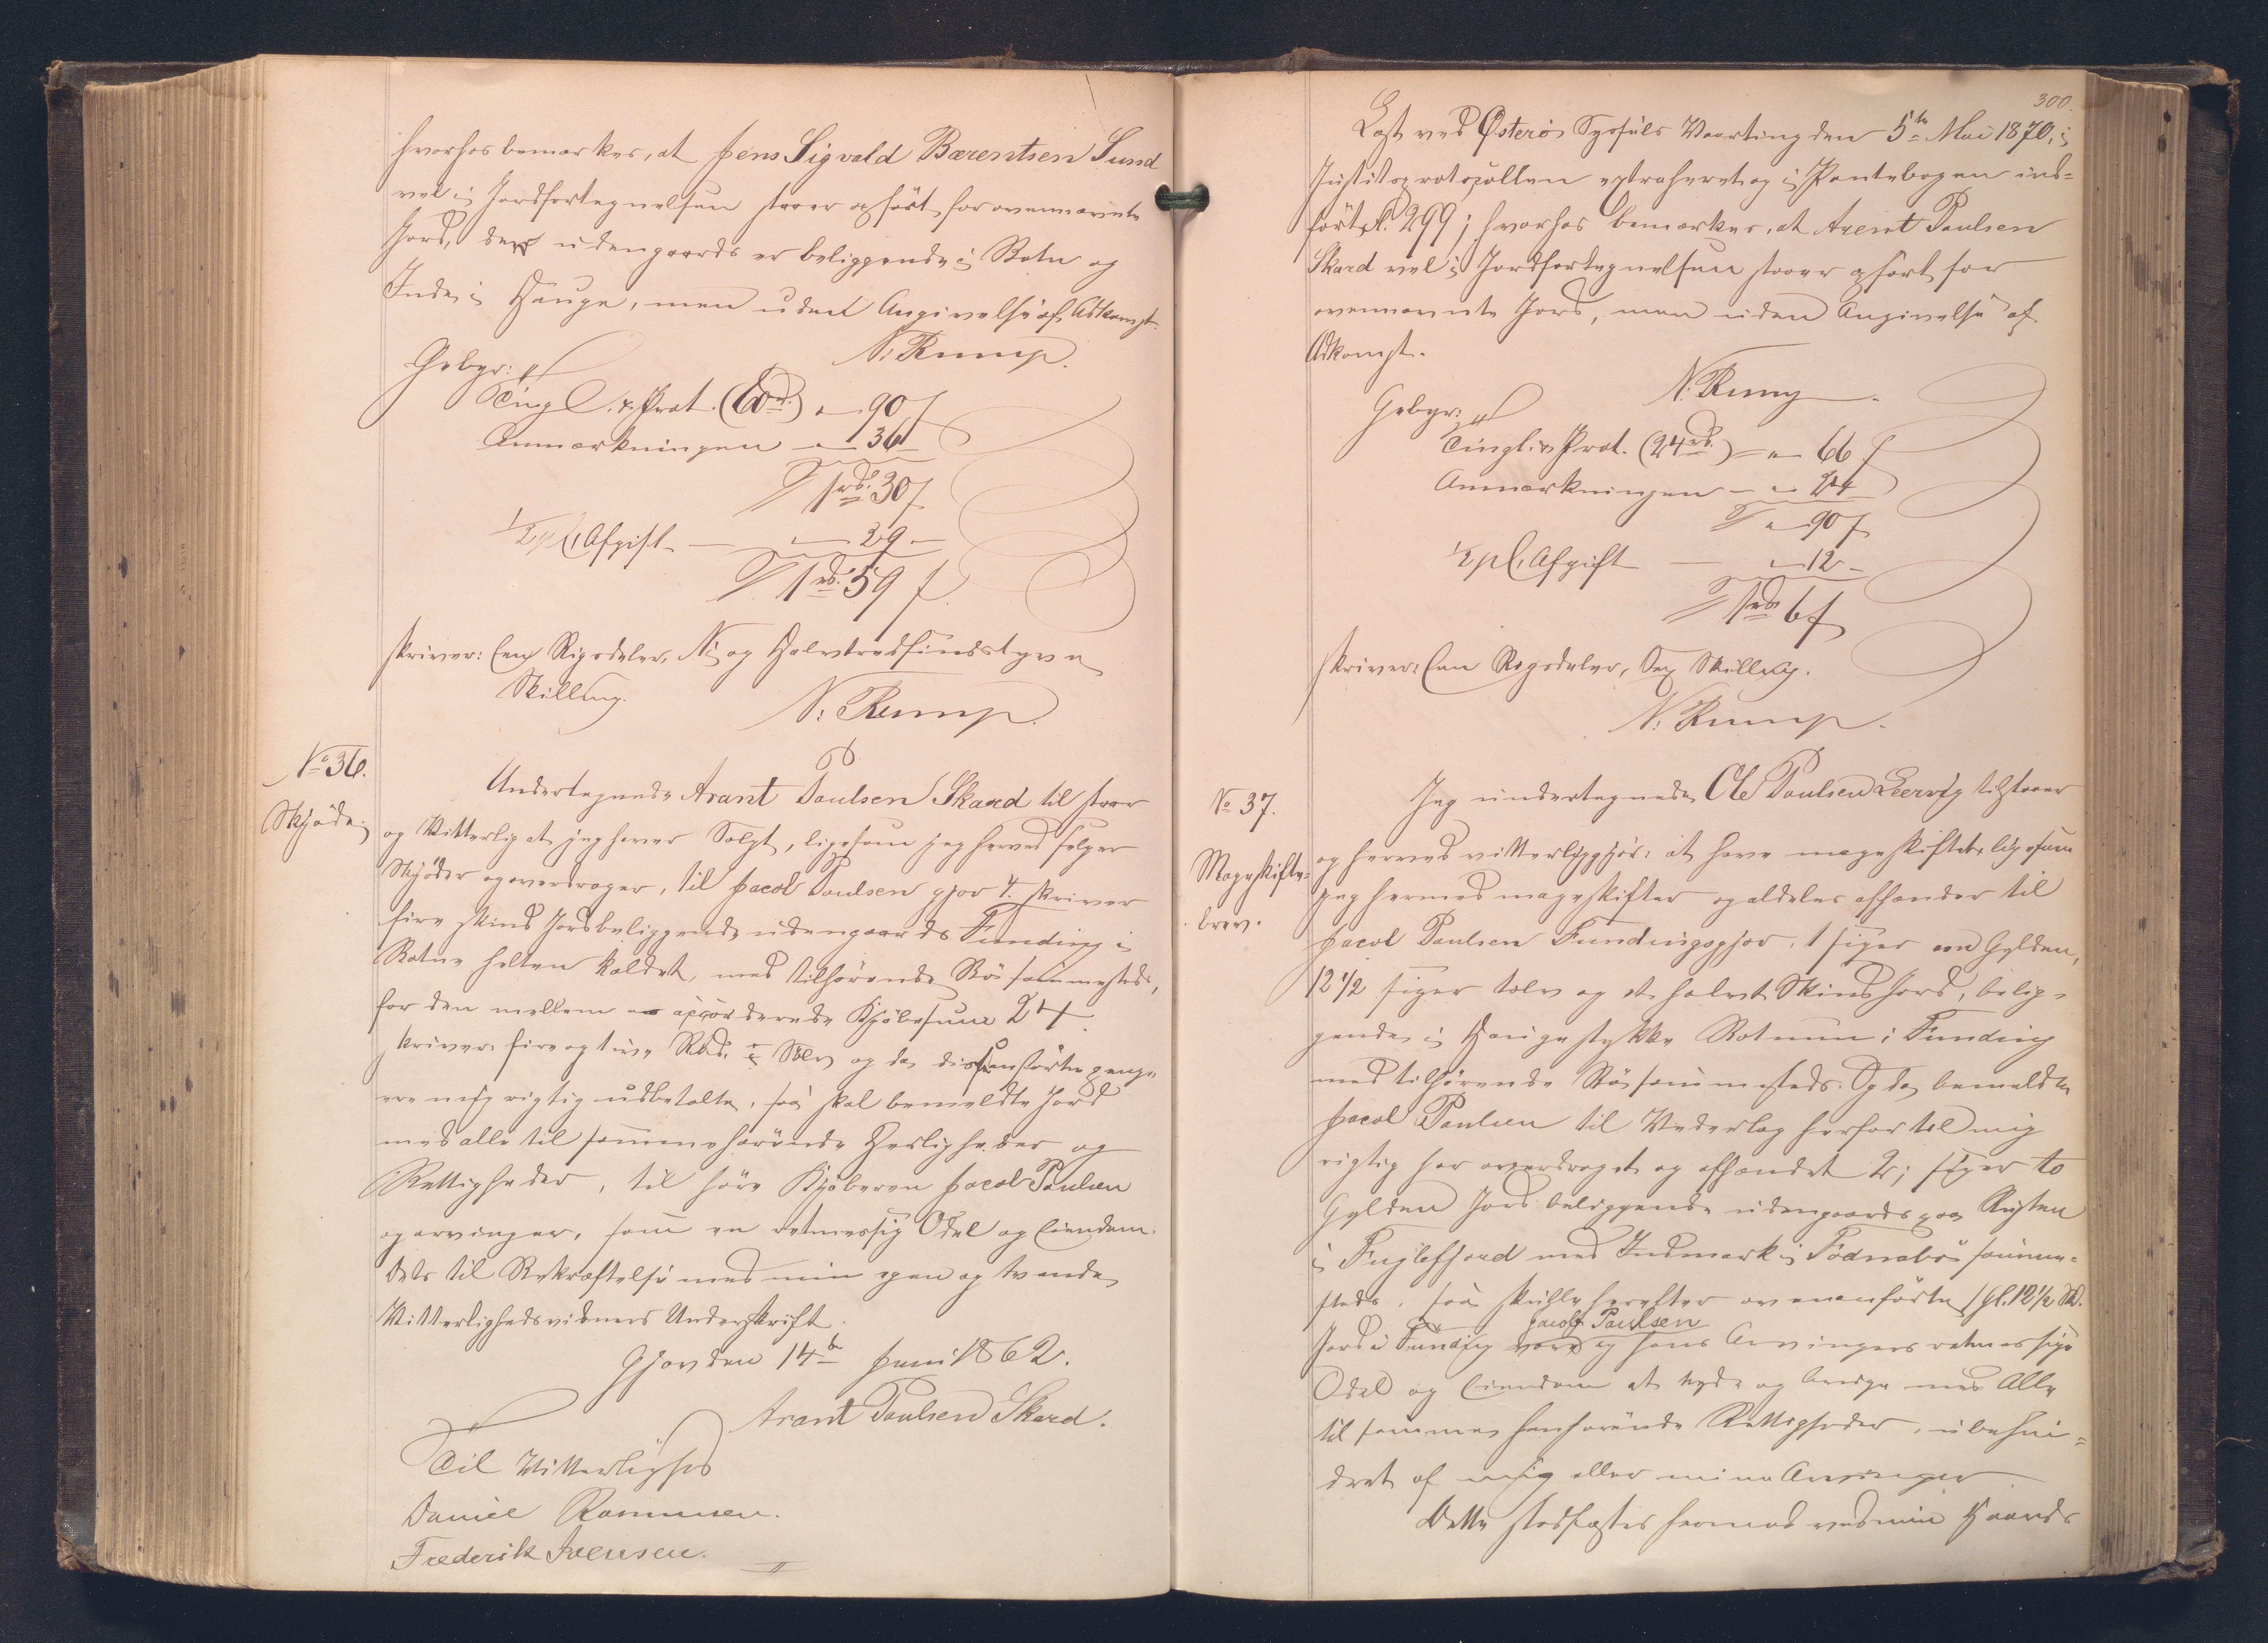 hvorhos bemærkes, at Jens Sigvald Bærentsen Sund
vel i Jordfortegnelsen staaer opført for ovennævnte
Jord, der udengaards er beliggende i Botn og
Inde i Hauge, men uden Angivelse af Adkomst.
N. Rump.
Gebyr:
Tingl. & Prot. (60 rd.) " - 90 ß
Anmærkningen - " 36
1 rd. 30 ß
1/2 pCt. Afgift - " - 29 -
1 rd. 59 ß
skriver: Een Rigsdaler, Ni og Halvtredsindstyve
Skilling.
N. Rump.
No 36.
Skjøde
Undertegnede Arant Poulsen Skard til staar
og Vitterlig at jeg haver Solgt, ligesom jeg herved selger
Skjøder og overdrager, til Jacob Poulsen gjov 4. skriver
fire skind Jord beliggende udengaards Funding i
Botne halten kaldet, med tilhørende Bø sammesteds,
for den mellem os accorderede Kjøbesum 24
skriver fire og tive Rbd. i Sølv og da disse anførte penge
ere mig rigtig udbetalte, saa skal bemeldte Jord
med alle til sammehørende Herligheder og
Rettigheder, til høre Kjøberen Jacob Poulsen
og arvinger, som en retmessig Odel og Eiendom.
Dets til Bekræftelse med min egen og tvende
Vitterlighedsvidners Underskrift.
Gjov den 14de Juni 1862.
Arant Poulsen Skard.
Til Vitterlighed
Daniel Rasmussen.
Frederik Joensen.
300.
Læst ved Østerø Syssels Vaarting den 5te Mai 1870, i
Justitsprotocollen extraheret og i Pantebogen ind-
ført f. 299; hvorhos bemærkes, at Arent Poulsen
Skard vel i Jordfortegnelsen staaer opført for
ovennævnte Jord, men uden Angivelse af
Adkomst.
N. Rump.
Gebyr:
Tingl. & Prot. (24 rd.) - " - 66 ß
Anmærkningen - " 24
" - 90 ß
1/2 pCt. Afgift - " 12 -
1 rd. 6 ß
skriver: Een Rigsdaler, Sex Skilling.
N. Rump.
No 37.
Mageskifte-
brev.
Jeg undertegnede Ole Poulsen Leervig tilstaaer
og herved vitterliggjør: at have mageskiftet ligesom
jeg hermed mageskifter og aldeles afhænder til
Jacob Poulsen Fundingsgjov, 1 siger een Gylden,
12 1/2 siger tolv og et halvt Skind Jord, belig-
gende i Haugestykke Botnum i Funding
med tilhørende Bø sammesteds. Og da bemeldte
Jacob Poulsen til Vederlag herfor til mig
rigtig har overdraget og afhændet 2, siger to
Gylden Jord beliggende udengaards paa Rysten
i Fuglefjord med Indmark i Todnabø samme-
steds, saa skulle herefter ovenanførte 1 Gl. 12 1/2 Sk.
Jord i Funding være Jacob Poulsen og hans Arvingers retmæssige
Odel og Eiendom at nyde og bruge med Alle
til samme henhørende Rettigheder, ubehin-
dret af mig eller mine Arvinger
Dette stadfæstes hermed ved min Haands